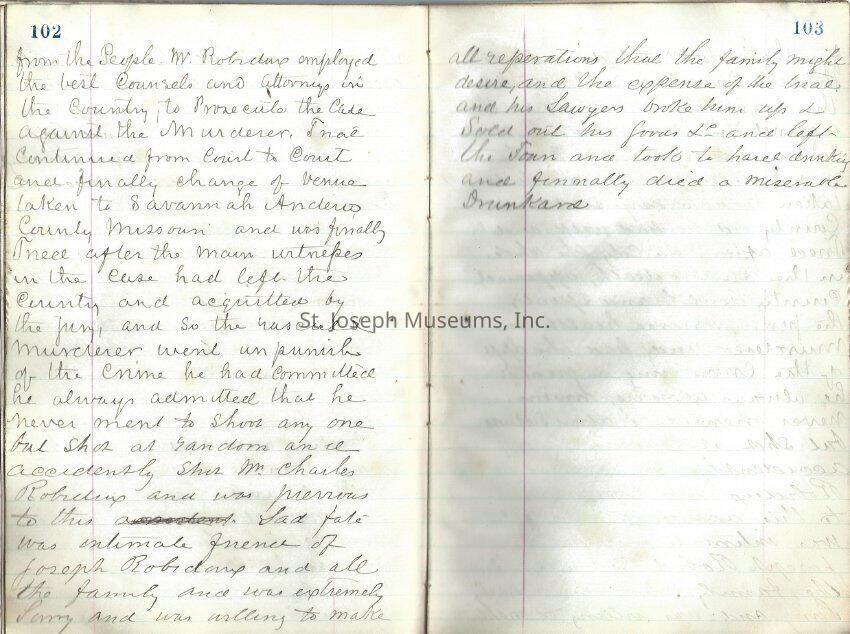 102
from the People. Mr. Robidoux employed
the best Counsels and attorneys in
the Country, to Prosecute the Case
against the Murderer. Trial
Continued from Court to Court
and finally change of venue
taken to Savannah Andrew
County Missouri and was finally
Tried after the main witnesses
in the Case had left the
Country and acquitted by
the jury, and so the
Murderer went unpunish
of the Crime he had Committed
he always admitted that he
never ment to Shoot any one
but Shot at random and
accidently Shot Mr. Charles
Robidoux and was previous
to this Sad fate
was intimate friend of
Joseph Robidoux and all
the family and was extremely
Sorry and was willing to make
103
all reperations that the family might
desire, and the expense of the trial,
and his Lawyers broke him up &
Sold out his Goods &c and left
the Town and took to hard drinking
and finnally died a miserable
Drunkard
St. Joseph Museums, Inc.